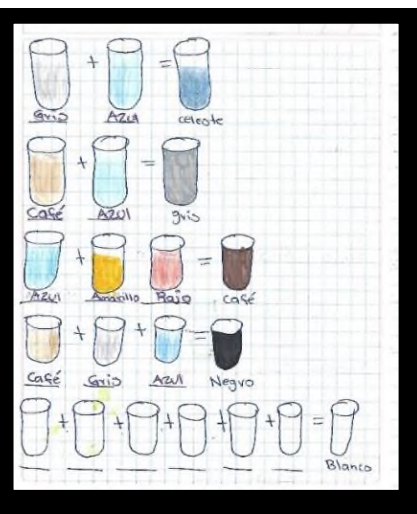 Gris + Azul = celeste
Café + Azul = gris
Azul + Amarillo Rojo = café
Café + Gris + Azul = Negro
+ + + + + = Blanco